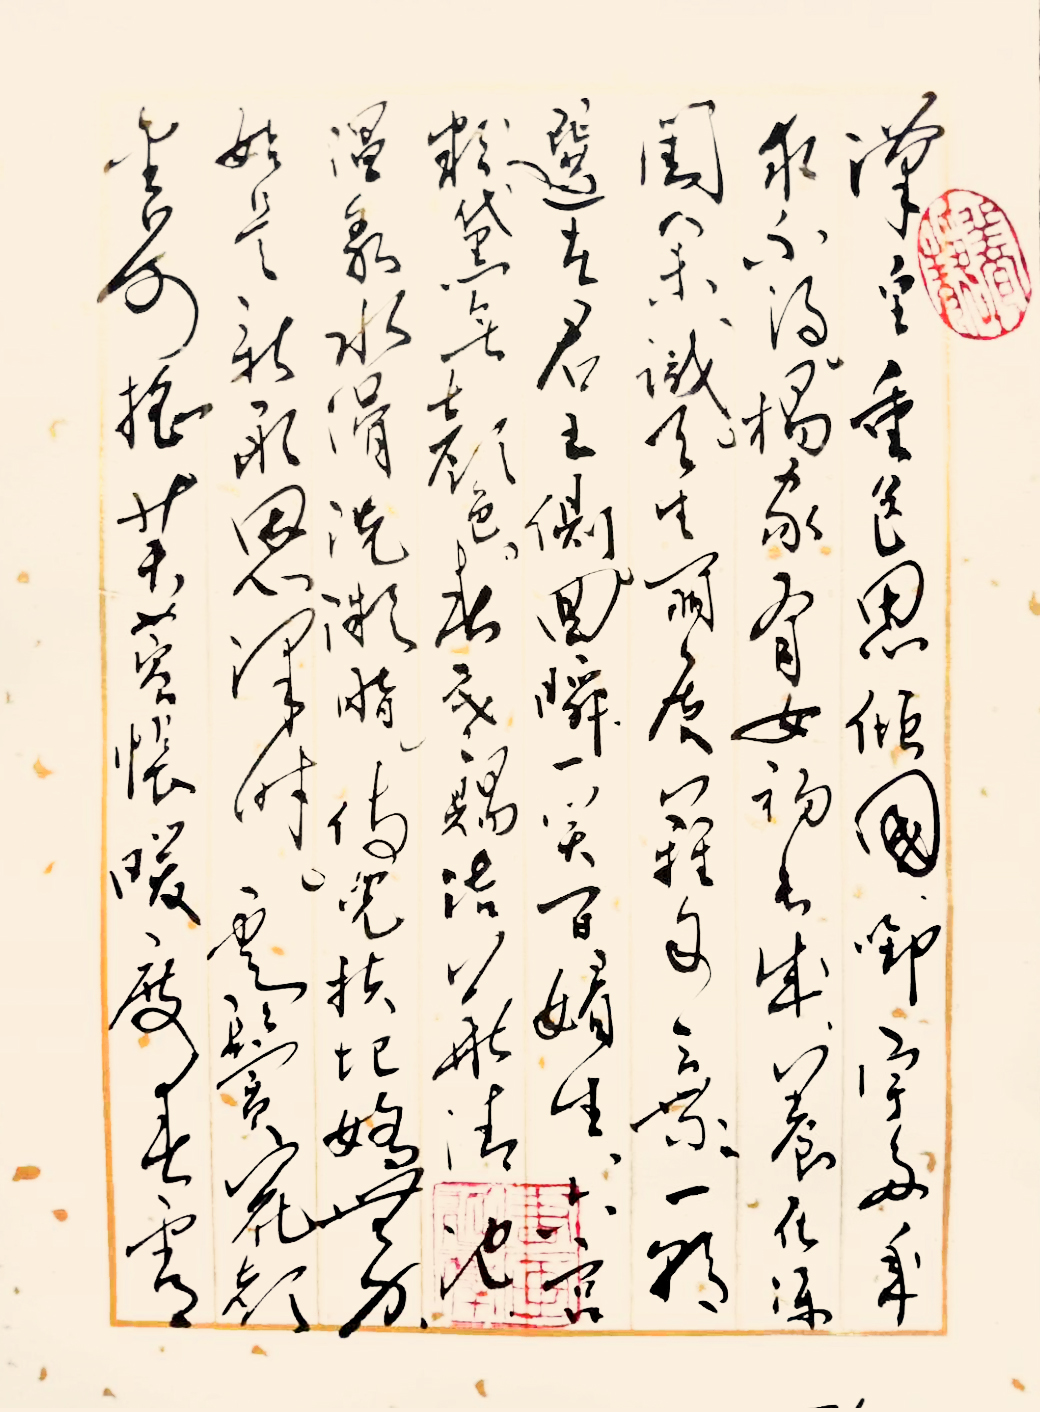 漢皇重色思傾國御宇多年
求不得楊家有女初長成養在深
閨人未識天生麗質難自棄一朝
選在君王側回眸一笑百媚生六宮
粉黛無顏色春寒賜浴華清池
溫泉水滑洗凝脂侍兒扶起嬌無力
始是新承恩澤時雲鬢花顏
金步搖芙蓉帳暖度春宵